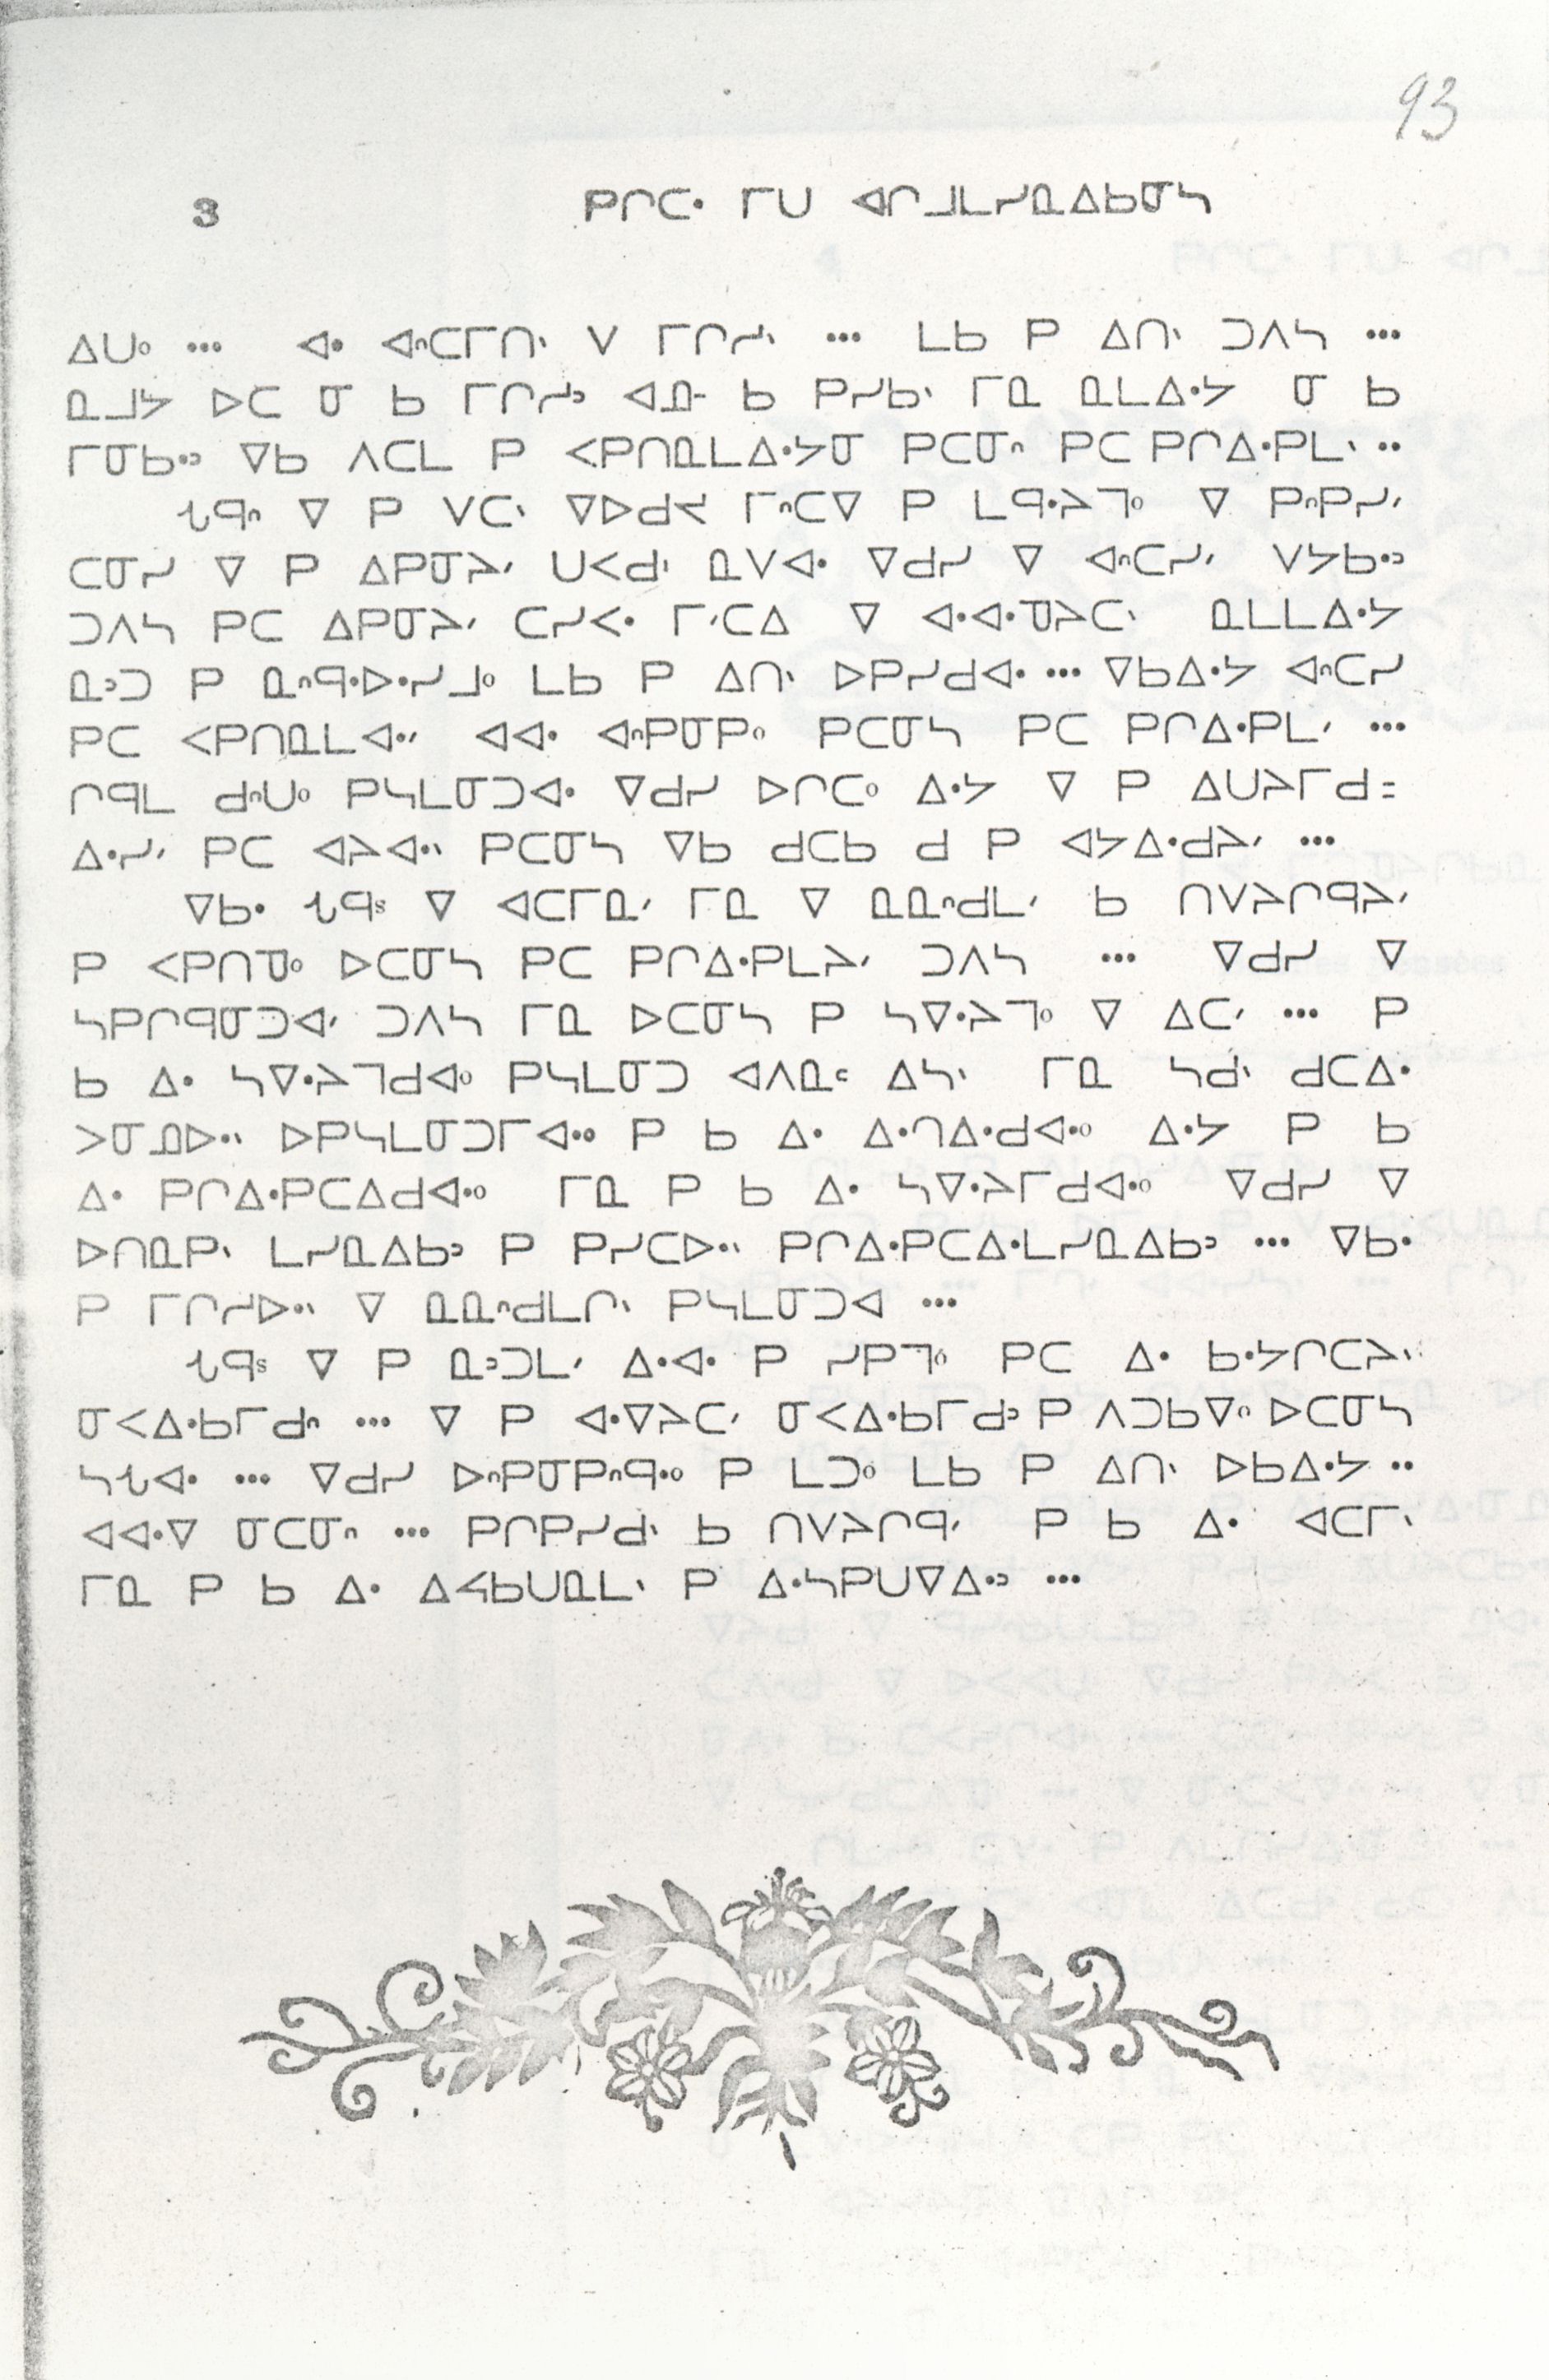 93
3 ᑭᒋᑕᐧ ᒥᑌ ᐊᒋᒧᒪᓯᓇᐃᑲᓂᓴ
ᐃᑌᐤ ... ᐊᐧ ᐊᐢᑕᒥᑎᐠ ᐯ ᒥᒋᓱᐠ ... ᒪᑲ ᑭ ᐃᑎᐠ ᑐᐱᓴ ...
ᓇᒧᔭ ᐅᑕ ᓂ ᑲ ᒥᒋᓱᐣ ᐊᓄᐦ ᑲ ᑭᓯᑲᐠ ᒥᓇ ᓇᒪᐃᐧᔭ ᓂ ᑲ
ᒥᓂᑲᐧᐣ ᐁᑲ ᐱᑕᒪ ᑭ ᐸᑭᑎᓇᒪᐃᐧᔭᓂ ᑭᑕᓂᐢ ᑭᑕ ᑭᒋᐃᐧᑭᒪᐠ ..
ᔐᑫᐢ ᐁ ᑭ ᐯᑕᐠ ᐁᐅᑯᔪ ᒥᐢᑕᐁ ᑭ ᒪᑫᐧᔨᒧᐤ ᐁ ᑭᐢᑭᓯᐟ
ᑕᓂᓯ ᐁ ᑭ ᐃᑭᓂᔨᐟ ᑌᐸᑯᐠ ᓇᐯᐊᐧ ᐁᑯᓯ ᐁ ᐊᐢᑕᓯᐟ ᐯᔭᑲᐧᐣ
ᑐᐱᓴ ᑭᑕ ᐃᑭᓂᔨᐟ ᑕᓯᐸᐧ ᒥᐟᑕᐃ ᐁ ᐊᐧᐊᐧᓀᔨᑕᐠ ᓇᒪᒪᐃᐧᔭ
ᓇᐣᑐ ᑭ ᓇᐢᑫᐧᐅᐧᓯᒧᐤ ᒪᑲ ᑭ ᐃᑎᐠ ᐅᑭᓯᑯᐊᐧ ... ᐁᑲᐃᐧᔭ ᐊᐢᑕᓯ
ᑭᑕ ᐸᑭᑎᓇᒪᐊᐧᐟ ᐊᐊᐧ ᐊᐢᑭᓂᑭᐤ ᑭᑕᓂᓴ ᑭᑕ ᑭᒋᐃᐧᑭᒪᐟ ...
ᒋᑫᒪ ᑯᐢᑌᐤ ᑭᓴᒪᓂᑐᐊᐧ ᐁᑯᓯ ᐅᒋᑕᐤ ᐃᐧᔭ ᐁ ᑭ ᐃᑌᔨᒥᑯ=
ᐃᐧᓯᐟ ᑭᑕ ᐊᔨᐊᐧᐠ ᑭᑕᓂᓴ ᐁᑲ ᑯᑕᑲ ᑯ ᑭ ᐊᔭᐃᐧᑯᔨᐟ ...
ᐁᑲᐧ ᔐᑫᔆ ᐁ ᐊᑕᒥᓇᐟ ᒥᓇ ᐁ ᓇᓇᐢᑯᒪᐟ ᑲ ᑎᐯᔨᒋᑫᔨᐟ
ᑭ ᐸᑭᑎᓀᐤ ᐅᑕᓂᓴ ᑭᑕ ᑭᒋᐃᐧᑭᒪᔨᐟ ᑐᐱᓴ ... ᐁᑯᓯ ᐁ
ᓴᑭᒋᑫᓂᑐᐊᐟ ᑐᐱᓴ ᒥᓇ ᐅᑕᓂᓴ ᑭ ᓴᐁᐧᔨᒣᐤ ᐁ ᐃᑕᐟ ... ᑭ
ᑲ ᐃᐧ ᓴᐁᐧᔨᒣᑯᐊᐤ ᑭᓴᒪᓂᑐ ᐊᐱᓇᑦ ᐃᓴᐠ ᒥᓇ ᓴᑯᐠ ᑯᑕᐃᐧ
ᐳᓂᓄᐅᐧᐠ ᐅᑭᓴᒪᓂᑐᒥᐊᐧᐤ ᑭ ᑲ ᐃᐧ ᐃᐧᒋᐃᐧᑯᐊᐧᐤ ᐃᐧᔭ ᑭ ᑲ
ᐃᐧ ᑭᒋᐃᐧᑭᑕᐃᑯᐊᐧᐤ ᒥᓇ ᑭ ᑲ ᐃᐧ ᓴᐁᐧᔨᒥᑯᐊᐧᐤ ᐁᑯᓯ ᐁ
ᐅᑎᓇᑭᐠ ᒪᓯᓇᐃᑲᐣ ᑭ ᑭᓯᑕᐅᐧᐠ ᑭᒋᐃᐧᑭᑕᐃᐧᒪᓯᓇᐃᑲᐣ ... ᐁᑲᐧ
ᑭ ᒥᒋᓱᐅᐧᐠ ᐁ ᓇᓇᐢᑯᒪᒋᐠ ᑭᓴᒪᓂᑐᐊ ...
ᔐᑫᔆ ᐁ ᑭ ᓇᐣᑐᒪᐟ ᐃᐧᐊᐧ ᑭ ᓯᑭᒣᐤ ᑭᑕ ᐃᐧ ᑲᐧᔭᒋᑕᔨᐠ
ᓂᐸᐃᐧᑲᒥᑯᐢ ... ᐁ ᑭ ᐊᐧᐁᔨᑕᐟ ᓂᐸᐃᐧᑲᒥᑯᐣ ᑭ ᐱᑐᑲᐁᐤ ᐅᑕᓂᓴ
ᓴᔐᐊᐧ ... ᐁᑯᓯ ᐅᐢᑭᓂᑭᐢᑫᐧᐤ ᑭ ᒪᑐᐤ ᒪᑲ ᑭ ᐃᑎᐠ ᐅᑲᐃᐧᔭ ..
ᐊᐊᐧᐁ ᓂᑕᓂᐢ ... ᑭᒋᑭᓯᑯᐠ ᑲ ᑎᐯᔨᒋᑫᐟ ᑭ ᑲ ᐃᐧ ᐊᑕᒥᐠ
ᒥᓇ ᑭ ᑲ ᐃᐧ ᐃᐹᑲᑌᓇᒪᐠ ᑭ ᐃᐧᓴᑭᑌᐁᐃᐧᐣ ...